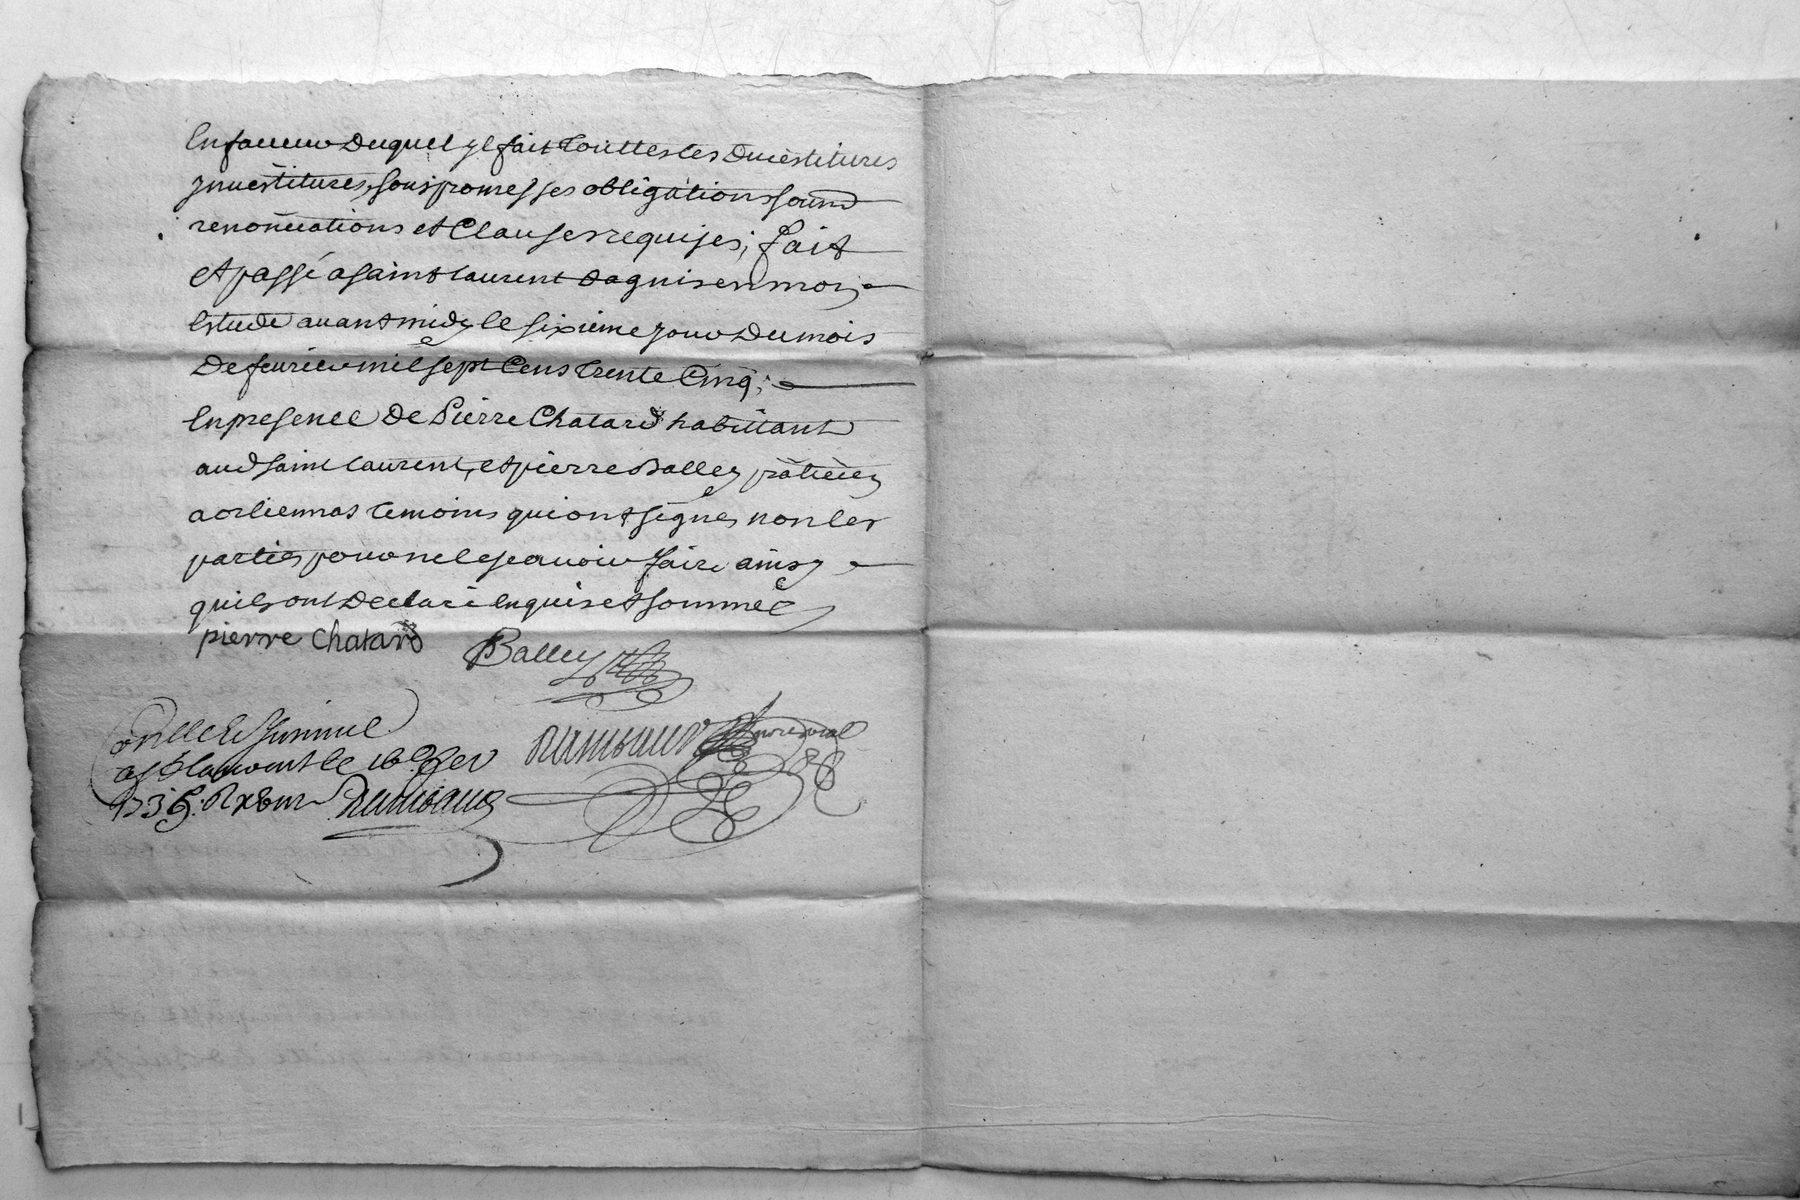 En faueur Duquel yl fait touttes les Duestitures
ynuestitures, sous promesses obligations soumd
renonciations et Clauses requises; fait
et passé a saint laurent dagnis en mon
Estude auant midy le sixieme jour Du mois
De feurier mil sept Cens trente Cinq;
En presence De Pierre Chatard habittant
aud saint laurent, et pierre Balley praticien
a orliennas temoins qui ont signés non les
parties pour ne le scauoir faire ainsy
quils ont Declaré Enquis et sommé
pierre Chatard Balley
Controllé
a St laurent le 16e feu
1735. Rembaud